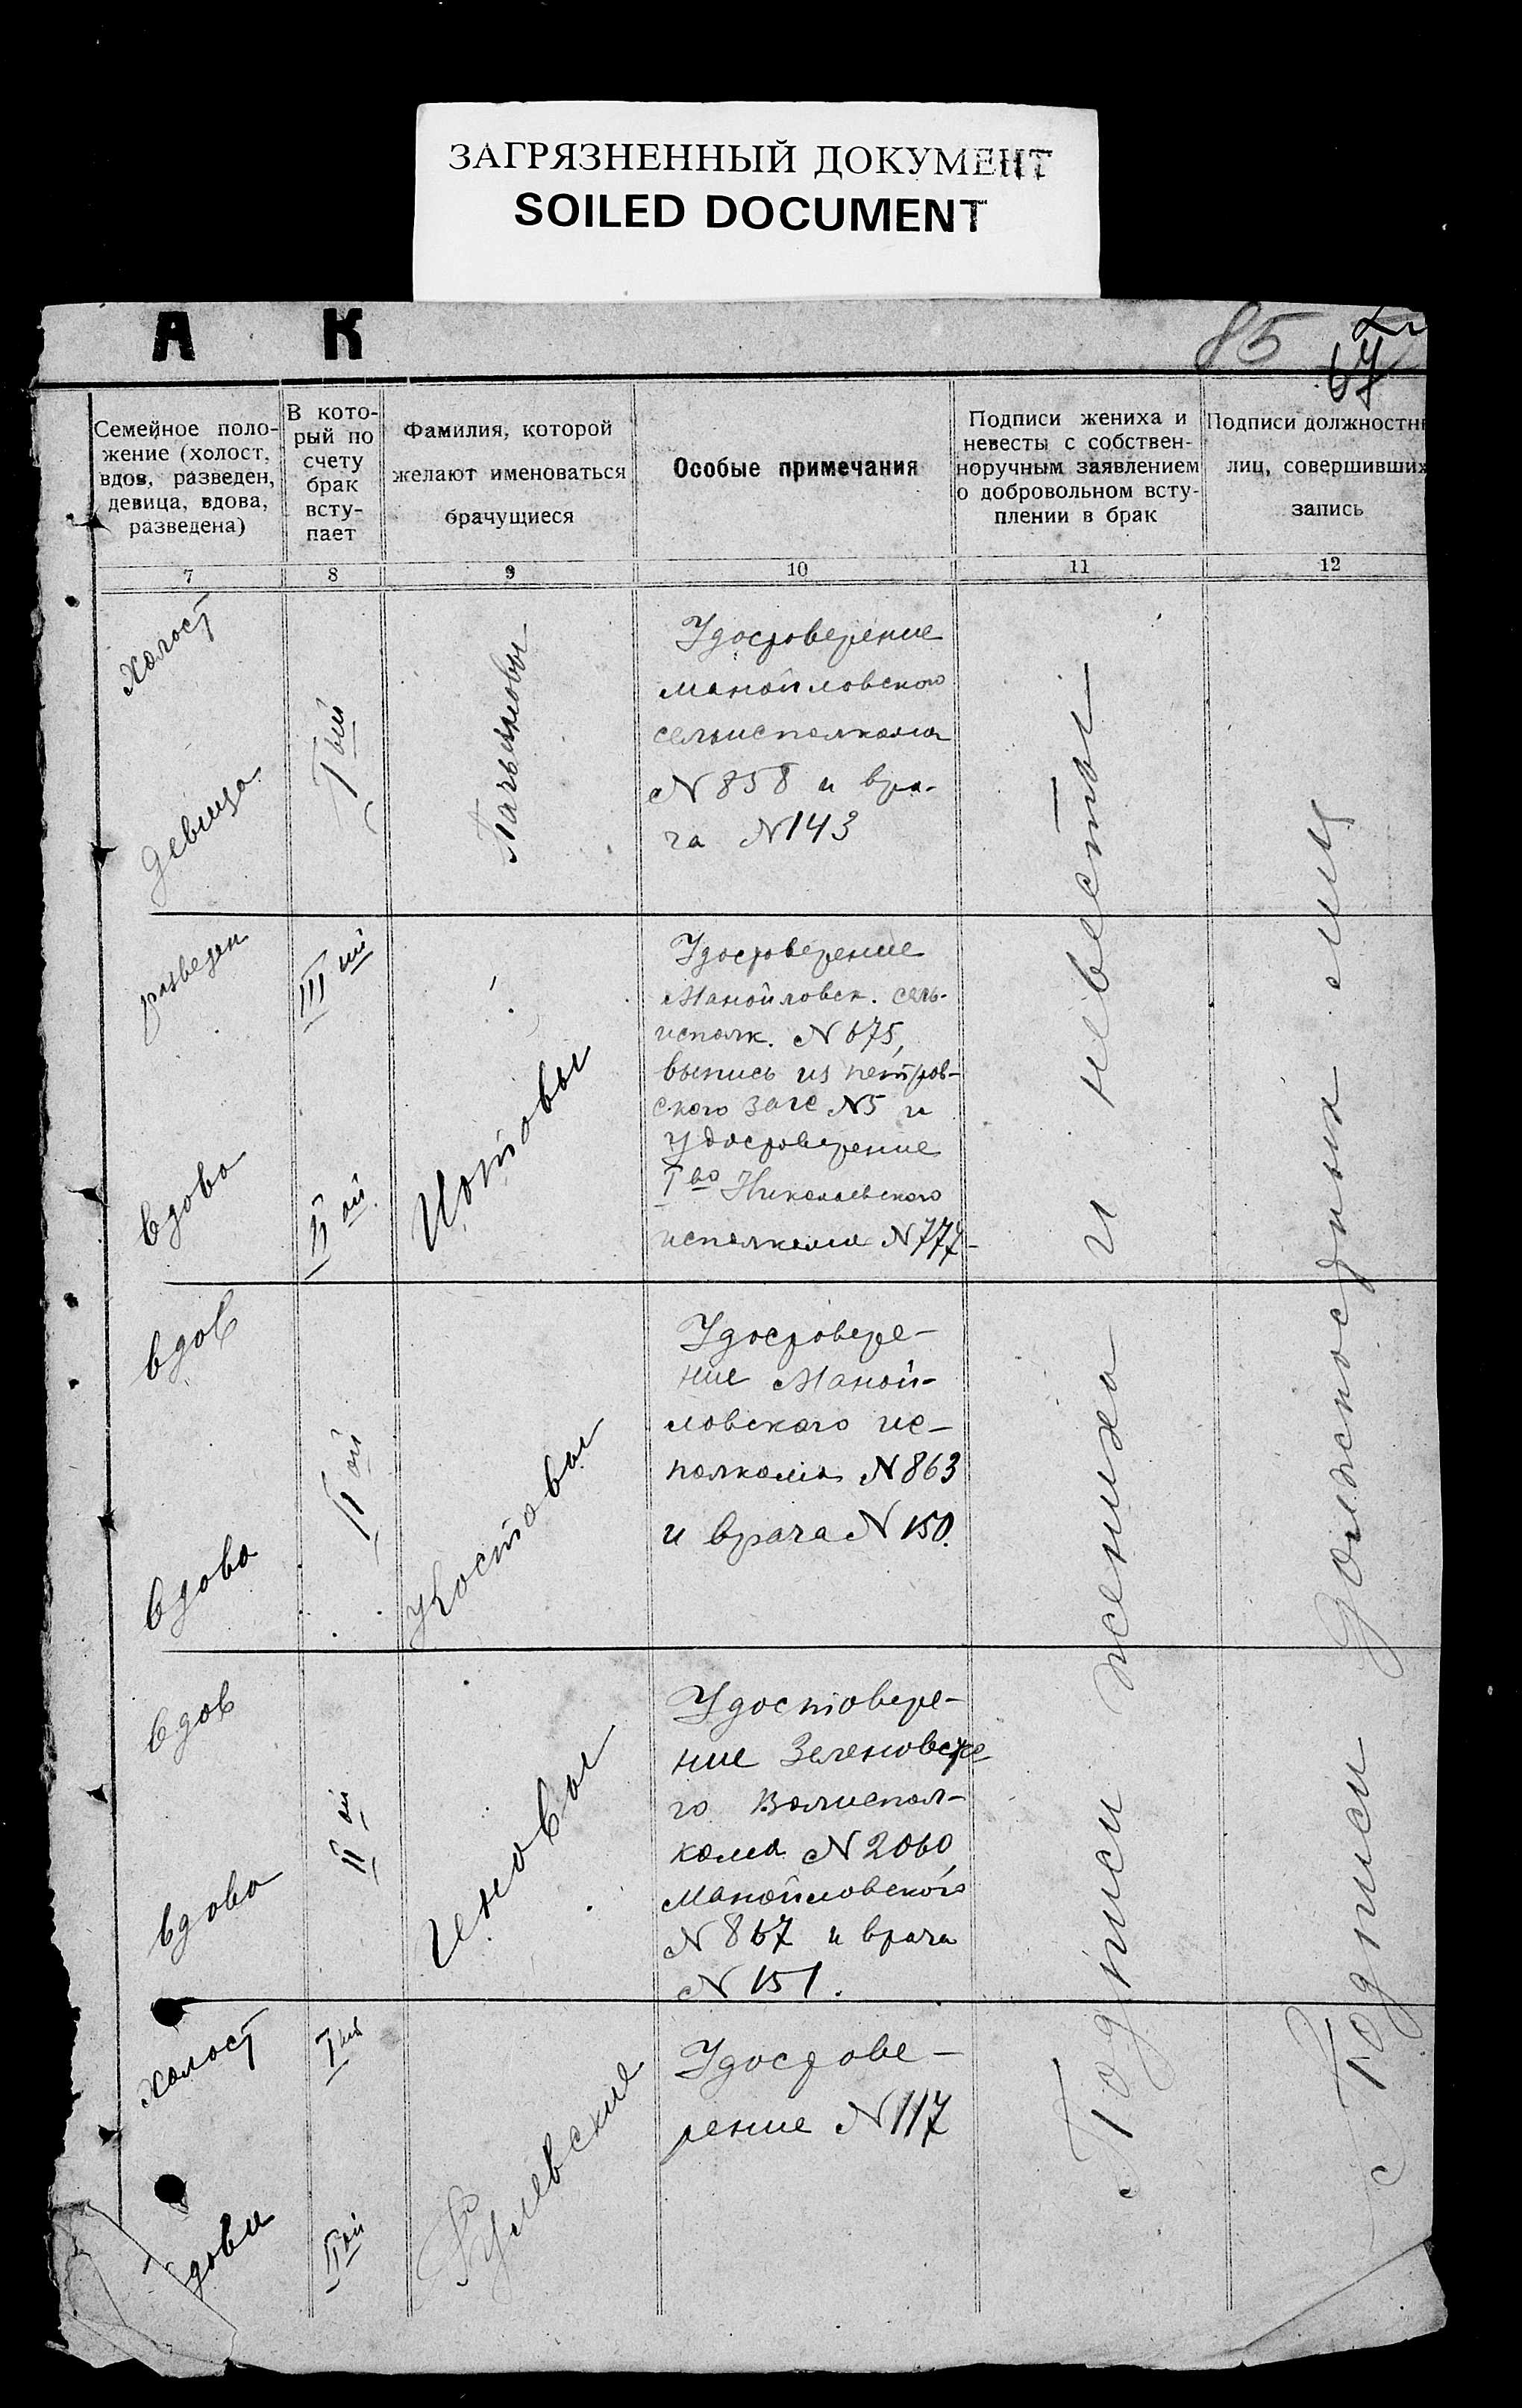 ЗАГРЯЗНЕННЫЙ ДОКУМЕНТ
SOILED DOCUMENT
А К
85
67
Семейное поло-
жение (холост,
вдов, разведен,
девица, вдова,
разведена)
7
В кото-
рый по
счету
брак
всту-
пает
8
Фамилия, которой
желают именоваться
брачущиеся
9
Особые примечания
10
Подписи жениха и
невесты с собствен-
норучным заявлением
о добровольном всту-
плении в брак
11
Подписи должностн
лиц, совершивших
запись
12
Холост
девица
I ый
Удостоверение
Манойловского
сельисполкома
N 858 и вра-
ча N 143
разведен
вдова
III ий
II ой
Изотовы
Удостоверение
Манойловск. сель-
исполк. N 675,
выпись из петров-
ского загс N5 и
удостоверение
I во Николаевского
исполкома N 777
вдов
вдова
II ой
Костовы
Удостовере-
ние Маной-
ловского ис-
полкома N 863
и врача N 150.
вдов
вдова
II ой
Иновы
Удостовере-
ние Зеленовско
го Волиспол-
кома N 2060,
Манойловского
N 867 и врача
N 151.
холост
дова
I ый
II ой
Удостове-
рение N 117
Подписи жениха и невесты
Подписи должностных лиц